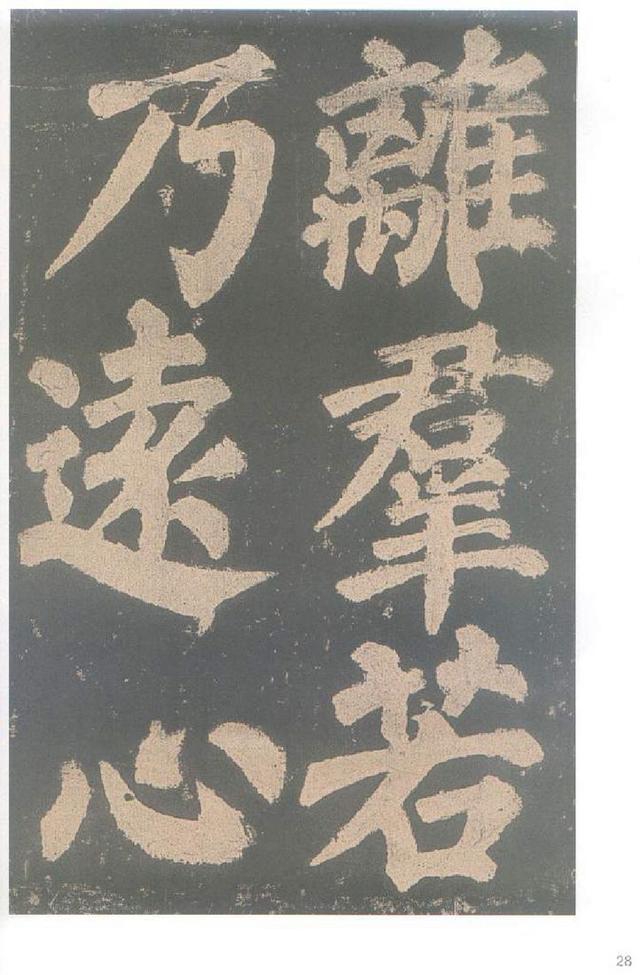 離羣若
乃遠心
28